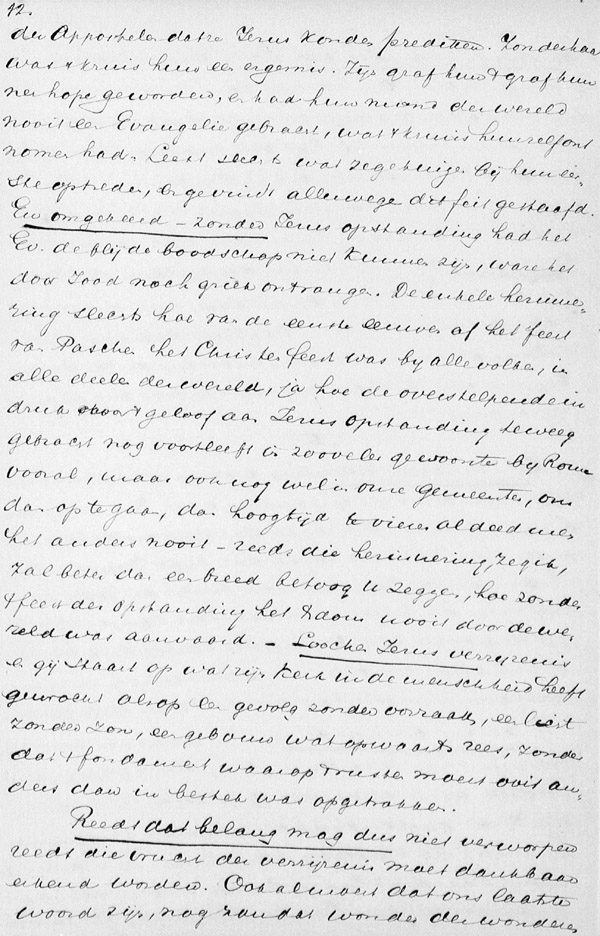 12.
den Apposhelen dat ze Jezus konden prediken. Zonder haar
was t kruis hun een ergernis. Zijn graf hun t graf hunner
hope geworden, en had hun mond der wereld
nooit een Evangelie gebracht, wat t kruis hunzelf ont
nomen had. Leest slechts wat ze getuigen bij hun eer-
ste optreden, en ge vindt allerwege dit feit gestaafd.
En omgekeerd – zonder Jezus opstanding had het
Ev. de blijde boodschap niet kunnen zijn, ware het
door Jood noch griek ontvangen. De enkele herinne-
ring slechts hoe van de eerste eeuwen af het feest
van Paschen het Christenfeest was by alle volken, in
alle deelen der wereld, ja hoe de overstelpende in
druk door t geloof aan Jezus opstanding teweeg
gebracht nog voortleeft in zoovele gewoonten by Rome
vooral, maar ook nog wel in onze gemeenten, om
dan op te gaan, dan hoogtijd te vieren al deed men
het anders nooit – reeds die herinnering zeg ik,
zal beter dan een breed betoog u zeggen, hoe zonder
t feest der opstanding het Xdom nooit door de we-
reld was aanvaard. – Loochen Jezus verrijzenis
en gij staart op wat zijn Kerk in de menschheid heeft
gewrocht als op een gevolg zonder oorzaak, een licht
zonder zon, een gebouw wat opwaarts rees, zonder
dat t fondament waarop t rusten moest ooit an-
ders dan in bestek was opgetrokken.
Reeds dat belang mag dus niet verworpen
reeds die vrucht der verrijzenis moet dankbaar
erkend worden. Ook al moest dat ons laatste
woord zijn, nog zou dat wonder der wonderen